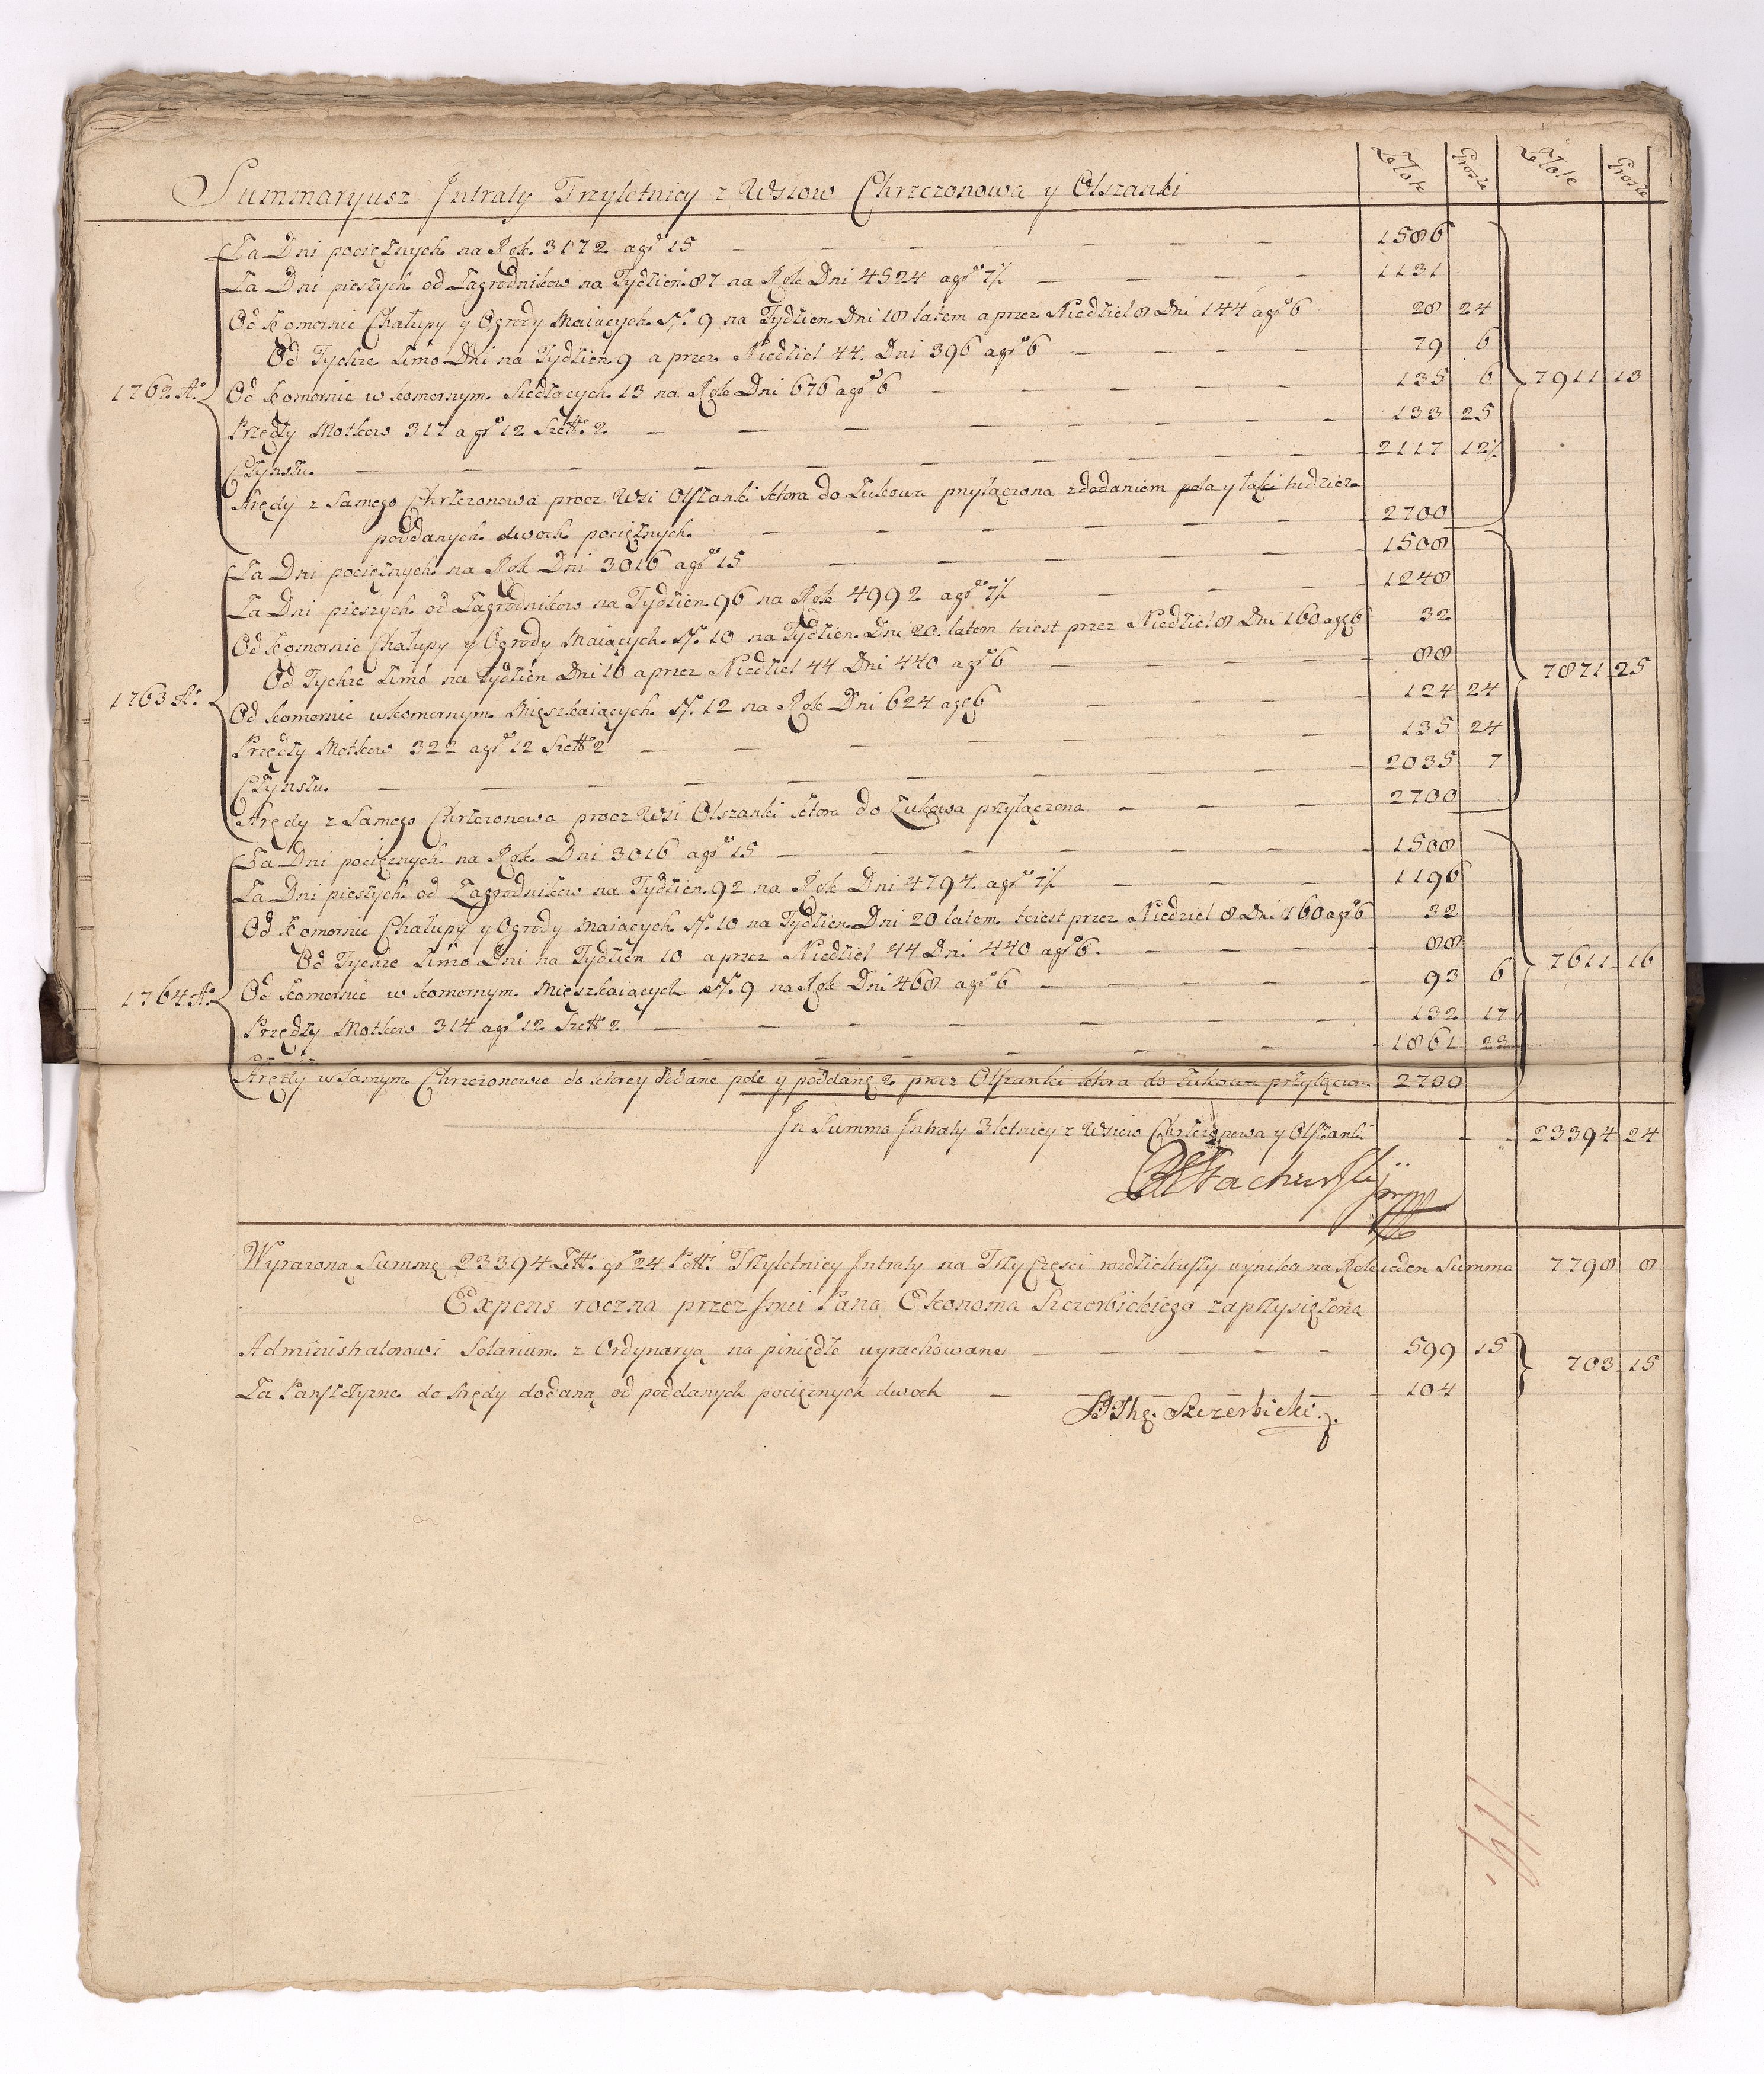 Summaryusz Intraty Trzyletniey z Wsiow Chrzczonowa y Olszanki Złote Grosze Złote Grosze
1762 Aº
Za Dni pociężnych na Rok 3172 a gr 15 — 1586
Za Dni pieszych od Zagrodnikow na Tydzień 87 na Rok Dni 4524 a gr 7½ — 1131
Od Komornic Chałupy y Ogrody Maiących Nº 9 na Tydzien Dni 18 latem a przez Niedziel 8 Dni 144 a gr 6 28 24
Od Tychże Zimo Dni na Tydzień 9 a przez Niedziel 44. Dni 396 a gr 6 — 79 6
Od Komornic w komornym Siedzących 13 na Rok Dni 676 a gr 6 — 135 6 7911 13
Przędzy Motkow 317 a gr 12 Szel 2 — 133 25
Czynszu — 2117 12½
Arędy z Samego Chrzczonowa procz Wsi Olszanki ktora do Żukowa przyłączona z dodaniem pola y łąki tudziesz
poddanych dwoch pociężnych — 2700
1763 Aº
Za Dni pociężnych na Rok Dni 3016 a gr 15 — 1508
Za Dni pieszych od Zagrodnikow na Tydzien 96 na Rok 4992 a gr 7½ — 1248
Od Komornic Chałupy y Ogrody Maiących Nº 10 na Tydzien Dni 20 latem to iest przez Niedziel 8 Dni 160 a gr 6 32
Od Tychże Zimo na Tydzień Dni 10 a przez Niedziel 44 Dni 440 a gr 6 — 88 7871 25
Od Komornic w komornym Mięszkaiących Nº 12 na Rok Dni 624 a gr 6 — 124 24
Przędzy Motkow 322 a gr 12 Szel 2 — 135 24
Czynszu — 2035 7
Arędy z Samego Chrzczonowa procz Wsi Olszanki ktora do Żukowa przyłączona — 2700
1764 Aº
Za Dni pociężnych na Rok Dni 3016 a gr 15 — 1508
Za Dni pieszych od Zagrodnikow na Tydzien 92 na Rok Dni 4794. a gr 7½ — 1196
Od Komornic Chałupy y Ogrody Maiących Nº 10 na Tydzien Dni 20 latem to iest przez Niedziel 8 Dni 160 a gr 6 32
Od Tychże Zimo Dni na Tydzien 10 a przez Niedziel 44 Dni 440 a gr 6. — 88 7611 16
Od Komornic w komornym Mięszkaiących Nº 9 na Rok Dni 468 a gr 6 — 93 6
Przędzy Motkow 314 a gr 12 Szel 2 — 132 17
— 1861 23
Arędy w Samym Chrzczonowie do ktorey dodane pole y poddane 2 procz Olszanki ktora do Żukowa przyłączona 2700
In Summa Intraty 3letniey z Wsiow Chrzczonowa y Olszanki 23394 24
Wyrazoną Summę 23394 Zł. gr 24 Pol. Trzyletniey Intraty na Trzy Częsci rozdzieliwszy wynika na Rok ieden Summa 7798 8
Expens roczna przez Jmci Pana Ekonoma Szczerbickiego zaprzysiężona
Administratorowi Solarium z Ordynaryą na piniędze wyrachowane — 599 15 703 15
Za Pańszczyzne do Arędy dodaną od poddanych pociężnych dwoch — 104
Szczerbicki